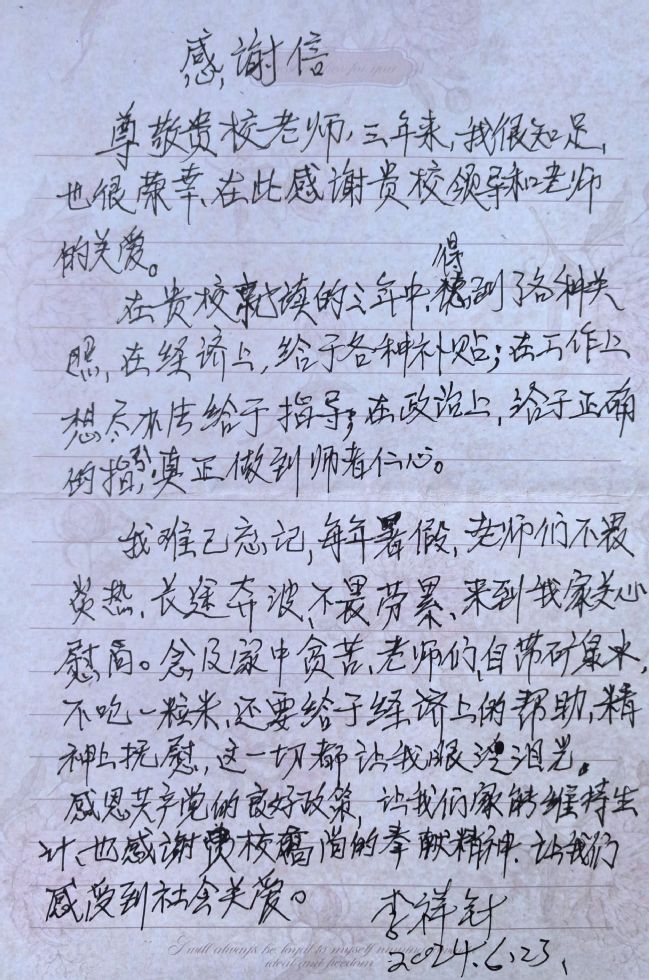 感谢信
尊敬贵校老师，三年来，我很知足，
也很荣幸，在此感谢贵校领导和老师
的关爱。
在贵校就读的三年中，得到了各种关
照，在经济上，给于各种补贴；在工作上
想尽办法给于指导；在政治上，给于正确
的指引，真正做到师者仁心。
我难已忘记，每年暑假，老师们不畏
炎热，长途奔波，不畏劳累，来到我家关心
慰问。念及家中贫苦，老师们，自带矿泉水，
不吃一粒米，还要给于经济上的帮助，精
神上抚慰，这一切都让我眼泛泪光。
感恩共产党的良好政策，让我们家能维持生
计、也感谢贵校高尚的奉献精神，让我们
感受到社会关爱。
李祥针
2024.6.23.
I will always be loyal to myself
ideal and freedom